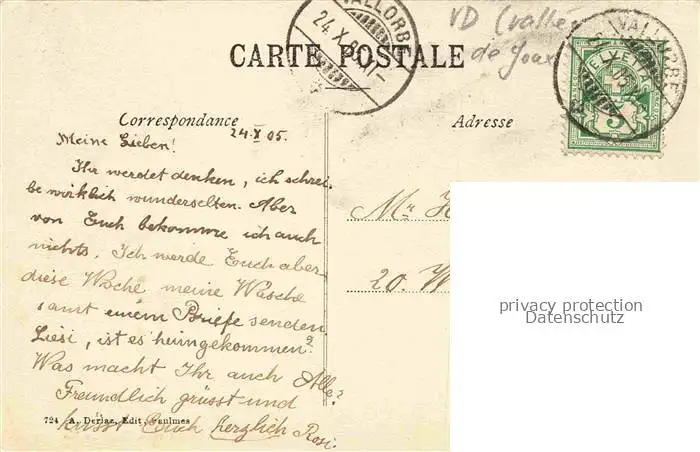 VALLORBE
24.X.05.XI-
VD (vallée
de Joux
CARTE POSTALE
HELVETIA
5
VALLORBE
Correspondance
Adresse
24.X 05.
Meine Lieben!
Ihr werdet denken, ich schrei-
be wirklich wunderselten. Aber
von Euch bekomme ich auch
nichts. Ich werde Euch aber
diese Woche meine Wäsche
samt einem Briefe senden
Liesi, ist es heimgekommen?
Was macht Ihr auch Alle?
Freundlich grüsst und
küsst Euch herzlich Rosi.
Mr H
20. W
724 A. Deriaz, Edit, Baulmes
privacy protection
Datenschutz